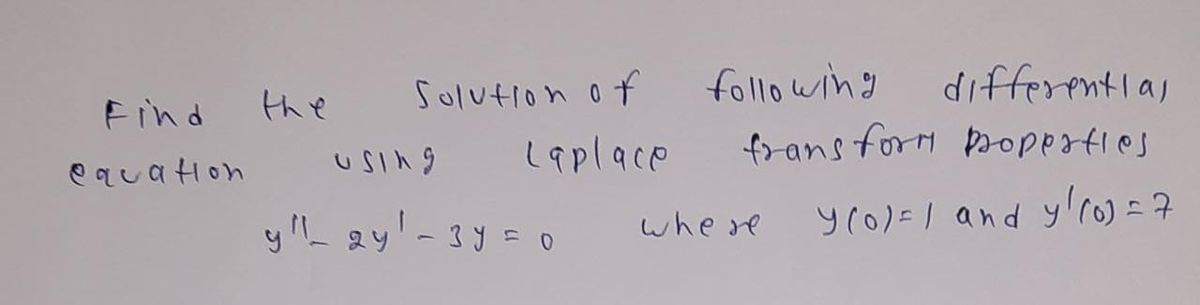 Find the Solution of following differential
equation using Laplace transform properties
y'' - 2y' - 3y = 0 where y(0)=1 and y'(0)=7